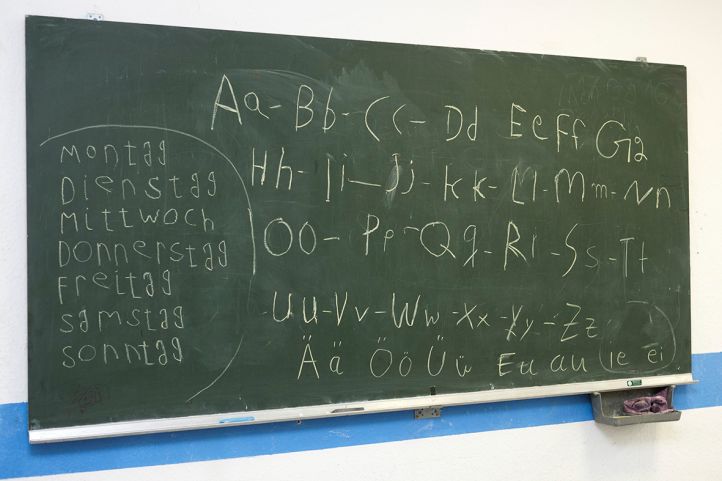 Montag
Dienstag
Mittwoch
Donnerstag
Freitag
Samstag
Sonntag
Aa - Bb - Cc - Dd Ee Ff Gg
Hh - Ii - Jj - Kk - Ll - Mm - Nn
Oo - Pp - Qq - Rr - Ss - Tt
Uu - Vv - Ww - Xx - Yy - Zz
Ää Öö Üü Eu au ie ei